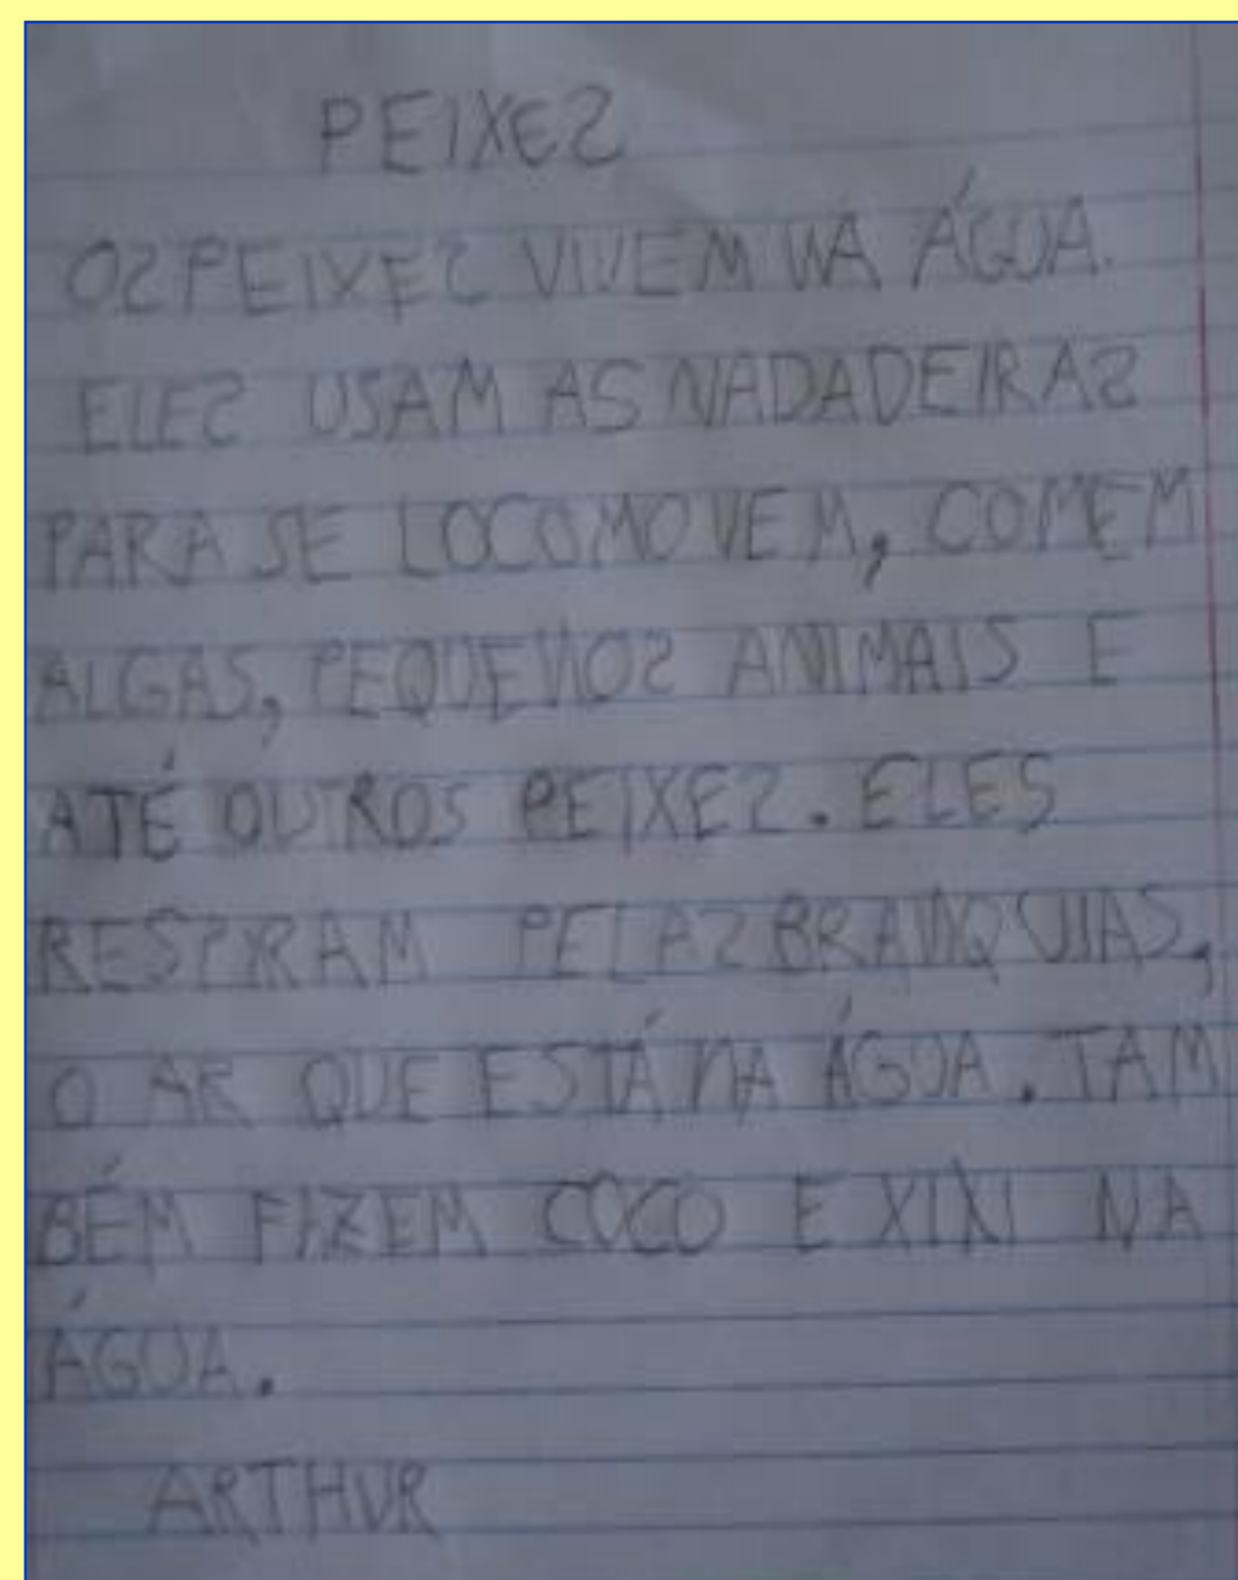 PEIXES
OS PEIXES VIVEM NA ÁGUA.
ELES USAM AS NADADEIRAS
PARA SE LOCOMOVEM, COMEM
ALGAS, PEQUENOS ANIMAIS E
ATÉ OUTROS PEIXES. ELES
RESPIRAM PELAS BRANQUIAS,
O AR QUE ESTÁ NA ÁGUA. TAM
BÉM FAZEM COCO E XIXI NA
ÁGUA.
ARTHUR